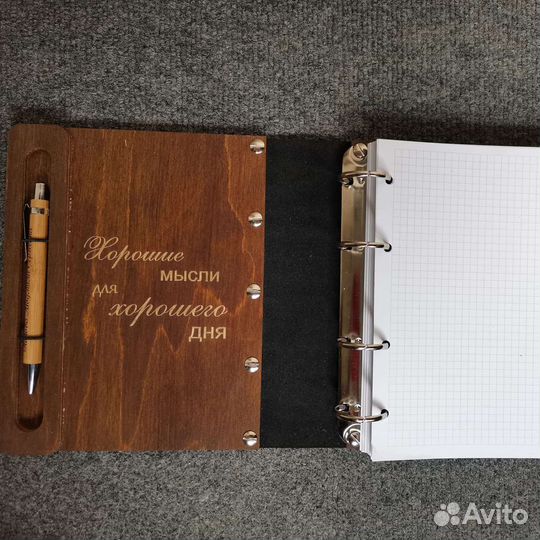 Хорошие
мысли
для
хорошего
дня
Avito